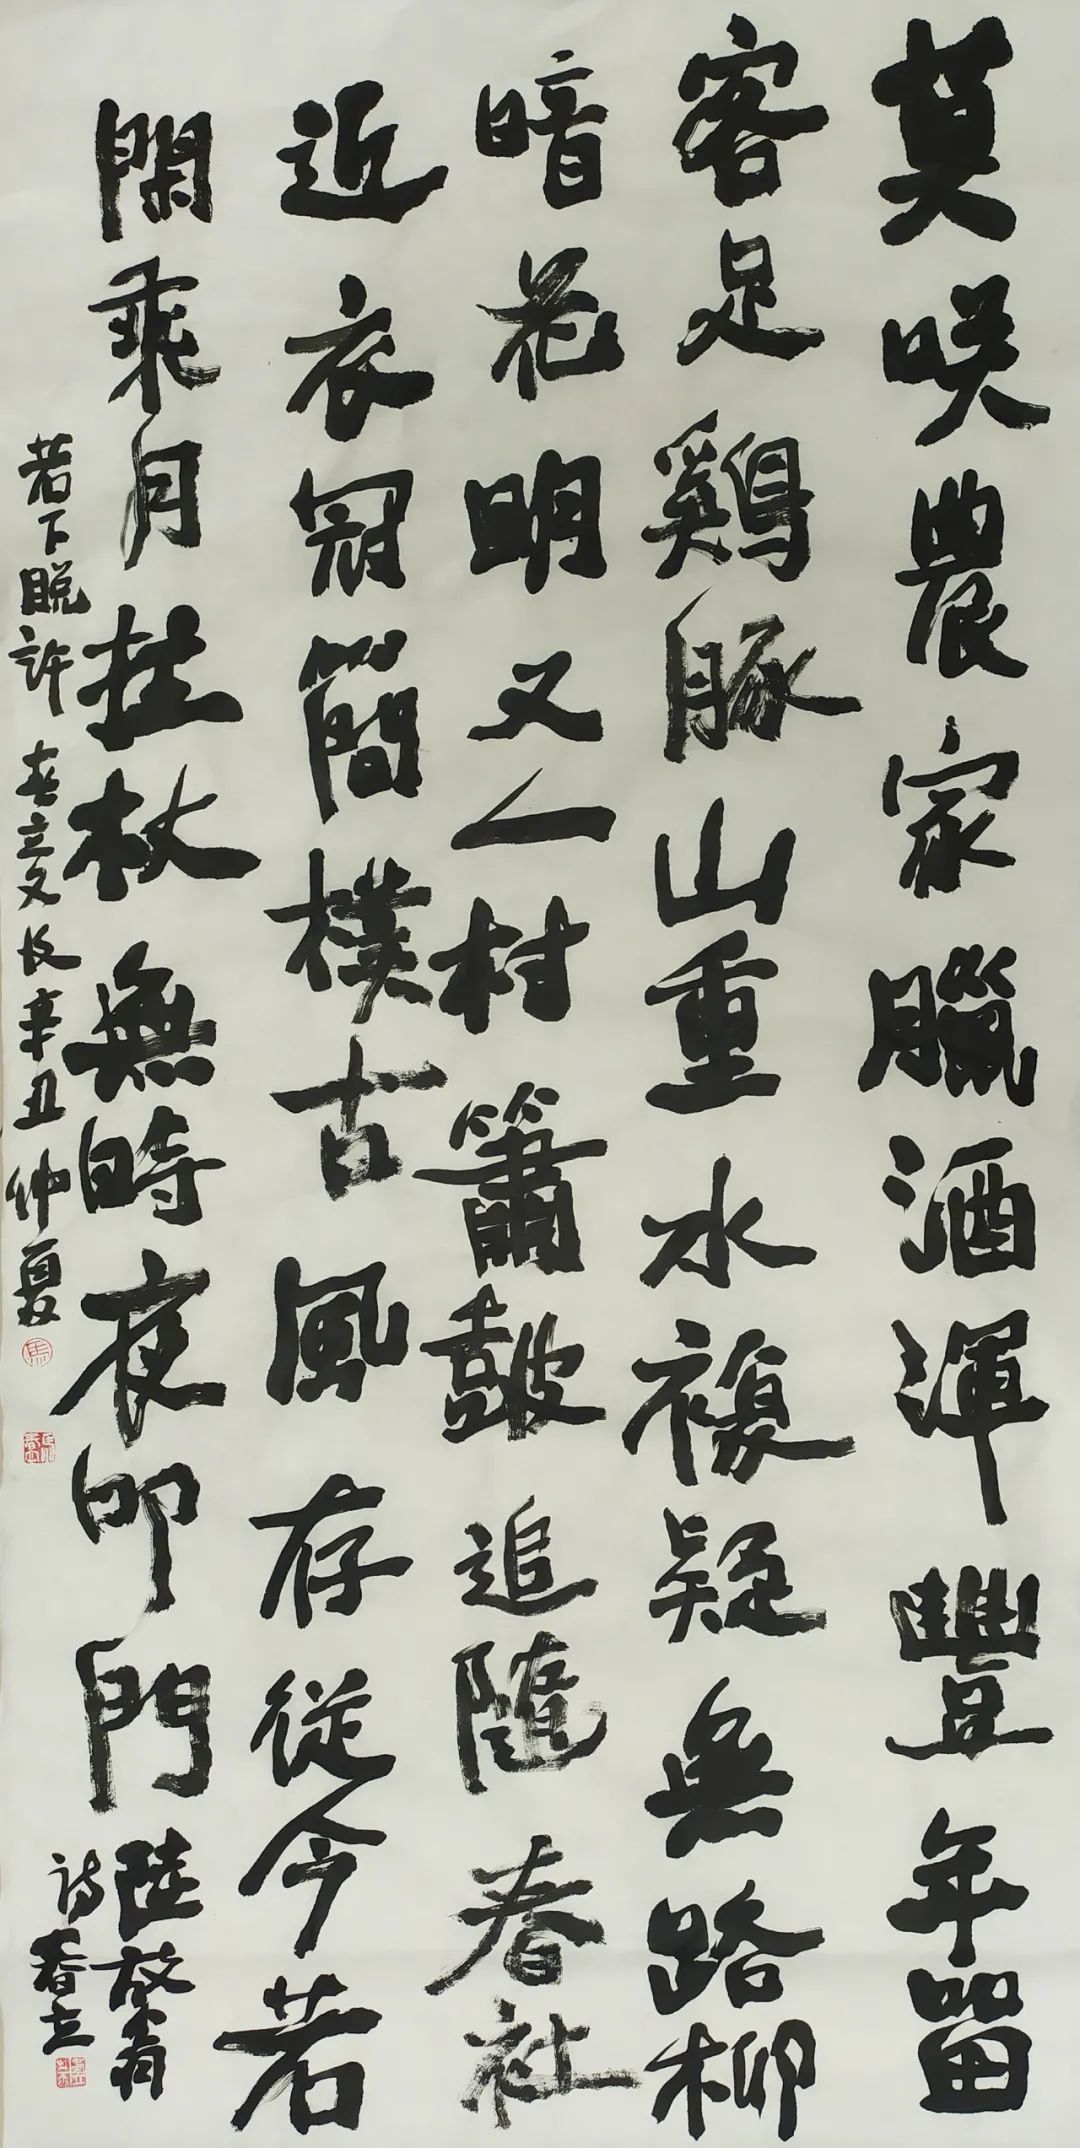 莫咲農家臘酒渾豐年留
客足鷄豚山重水複疑無路柳
暗花明又一村簫皷追隨春社
近衣冠簡樸古風存從今若
閑乘月拄杖無時夜叩門 陸放翁
诗春立
若下脱許 春立又及辛丑仲夏